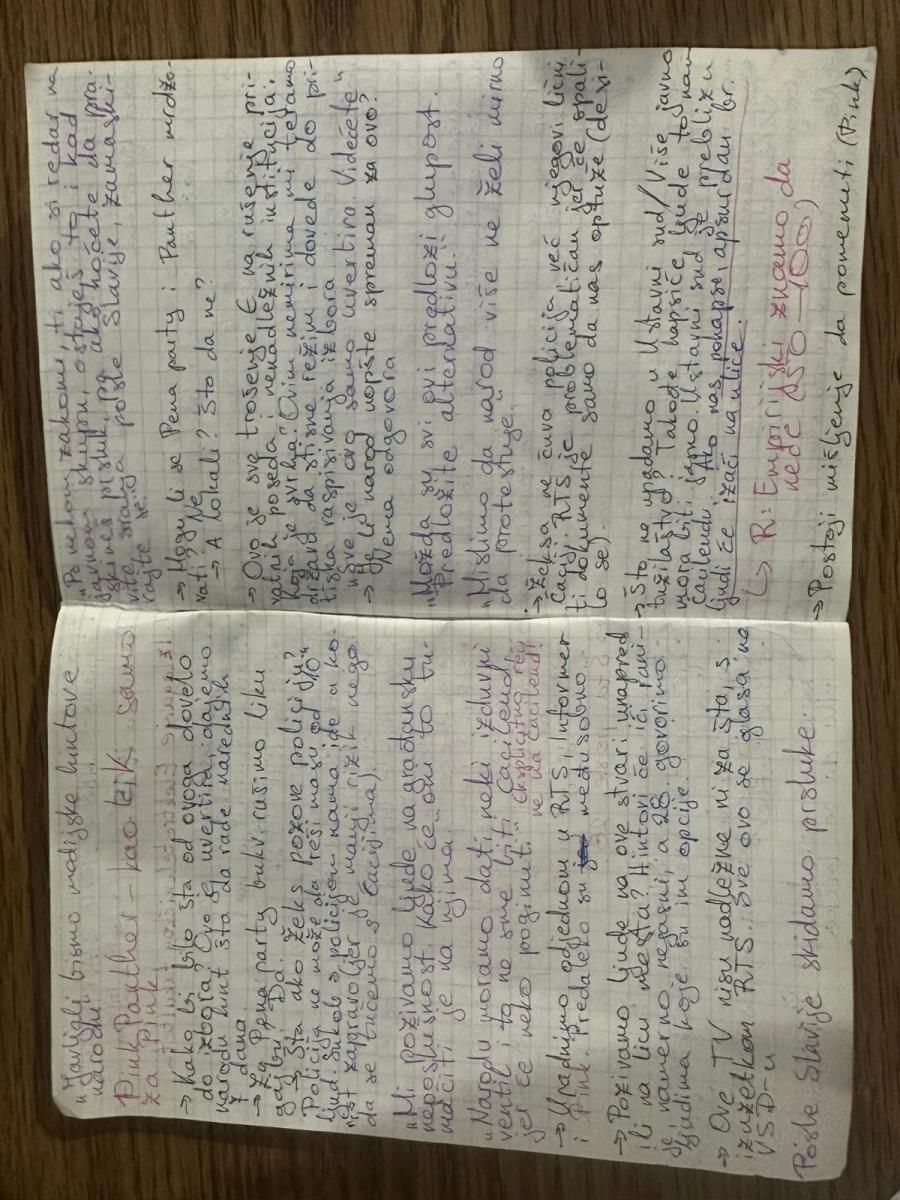 "Javljali bismo medijske huntove
"narodu"
Pink Panther - kao ećiKi samo
za Pink
→ Kako bi bilo šta od ovoga dovelo
do izbora? Ovo je uvertira, dajemo
narodu hint šta da rade narednih
dana
→ Za Pena party bukv. rušimo liku
gajbu. Da.
→ Šta ako Žeks pozove policiju?
Policija ne može da reši našu od 10
ljudi. Sukob s policijom nama ide u ko-
rist zapravo (jer je manji rizik nego
da se tučemo s ćacijima)
"Mi pozivamo ljude na građansku
neposlušnost. Kako će oni to tu-
mačiti je na njima.
"Narodu moramo dati neki izduvni
ventil i to ne sme biti Ćacilend,
jer će neko poginuti. Eksplicitno reći
ne na Ćacilend!
→ Upadnimo odjednom u RTS, Informer
i Pink. Predaleko su međusobno
→ Pozivamo ljude na ove stvari unapred
ili na licu mesta? Hintovi će ići rani-
je i namerno nejasni, a 28. govorimo
ljudima koje su im opcije
→ Ove TV nisu nadležne ni za šta, s
izuzetkom RTS. Sve ovo se glasa na
VSD-u
Posle Slavije skidamo prsluke.
"Po nekom zakonu, ti ako si redar na
javnom skupu, ostaješ to i kad
skineš prsluk, pa ako hoćete da pra-
vite sranja posle Slavije, zamaski-
rajte se.
→ Mogu li se Pena party i Panther mrdžo-
vati? Ne
→ A lokali? Što da ne?
→ Ovo je sve trošenje E na rušenje pri-
vatnih poseda i nenadležnih institucija.
Koja je svrha? Ovim nemirima mi teramo
državu da stisne režim i dovede do pri-
tiska raspisivanja izbora
"Sve je ovo samo uvertira. Videćete"
→ Je li narod uopšte spreman za ovo?
Nema odgovora
"Možda su svi ovi predlozi glupost.
Predložite alternativu."
"Mislimo da narod više ne želi mirno
da protestuje.
→ Žeksa ne čuva policija već njegovi lični
ćaciji. RTS je problematičan jer će spali-
ti dokumente samo da nas optuže (desi-
lo se).
→ Što ne upadamo u Ustavni sud/Više javno
tužilaštvo? Takođe hapšiće ljude to nam
mora biti jasno. Ustavni sud je preblizu
Ćacilendu. Ako nas pohapse, apsurdan br.
ljudi će izaći na ulice.
↳ R: Empirijski znamo da
neće (50-100)
→ Postoji mišljenje da pomenuti (Pink)